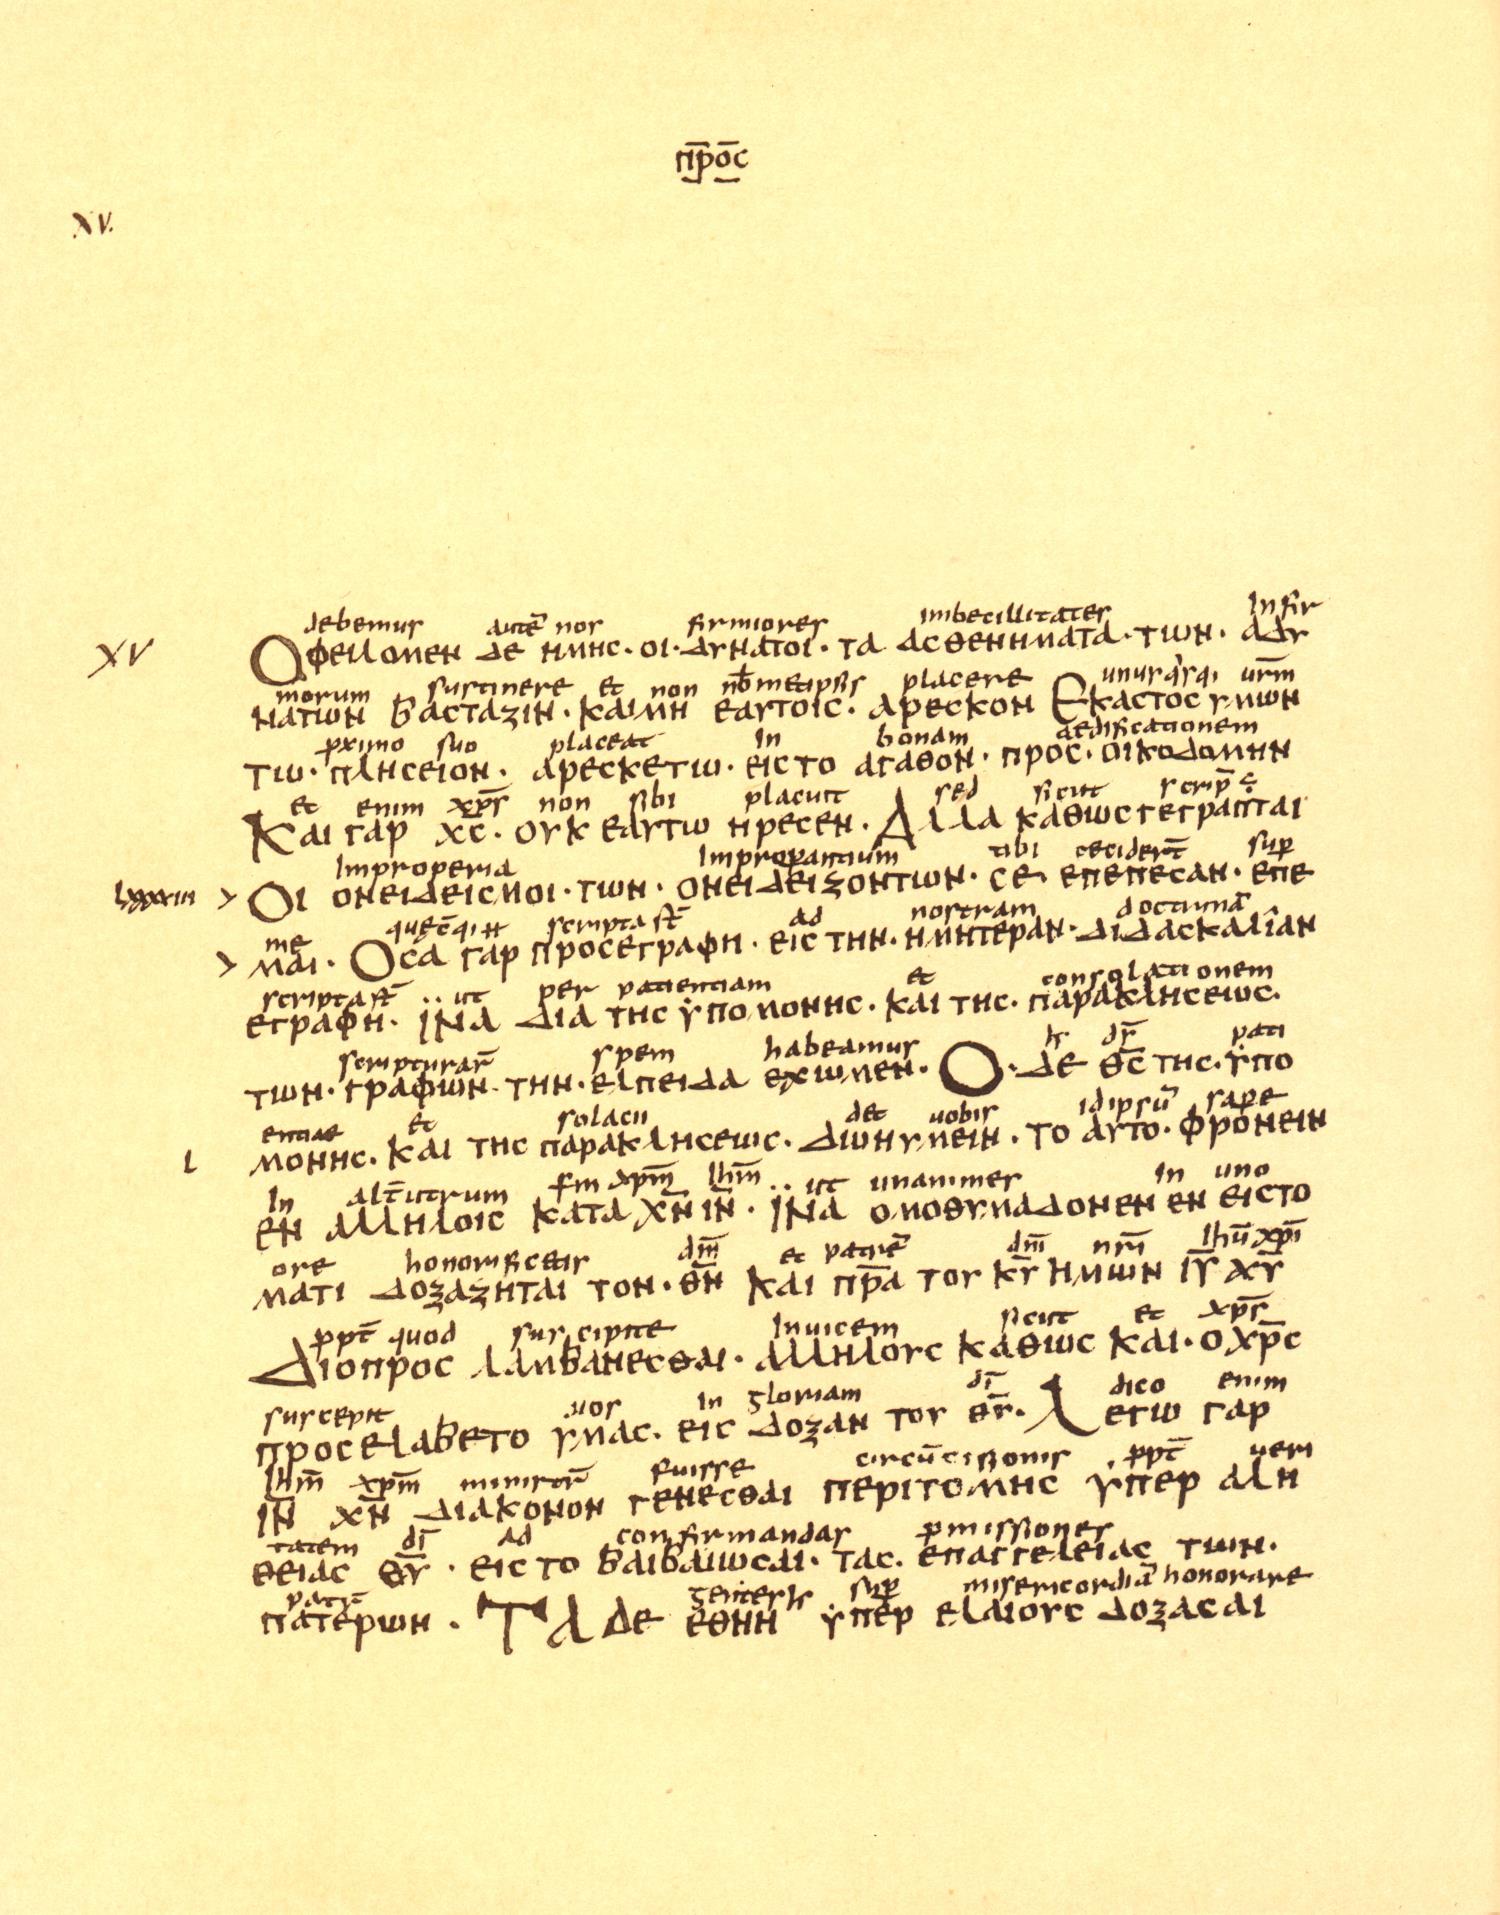 π̅ρ̅ο̅ς
XV.
debemus autē nos firmiores imbecillitates Infir
XV Οφειλομεν δε ημης· οι· δυνατοι· τα ασθενηματα· των· αδυ
morum sustinere et non nob̄metipsis placere unusq̄sq; urm̄
νατων βασταζιν· και μη εαυτοις· αρεσκον Εκαστος υμων
pximo suo placeat In bonam aedificationem
τω· πλησειον· αρεσκετω· εις το αγαθον· προς· οικοδομην
et enim xp̄s non sibi placuit sed sicut scrip̄
Και γαρ χ̅ς· ουκ εαυτω ηρεσεν· Αλλα καθως γεγραπται
Improperia Impropantium tibi cecidert̄ sup
lxxxiii > Οι ονειδεισμοι· των· ονειδειζοντων· σε· επεπεσαν· επε
me scripta st̄ ad nostram doctrinā
> μαι· Οσα γαρ προσεγραφη· εις την· ημητεραν· διδασκαλιαν
scripta st̄ ut per patientiam et consolationem
εγραφη· ϊνα δια της ϋπομονης· και της· παρακλησεως·
scripturar̄ spem habeamus ds̄ pati
των· γραφων· την· ελπειδα εχωμεν· Ο· δε θ̅ς της· ϋπο
entiae et solacii det uobis idipsū sape
l μονης· και της παρακλησεως· δωη υμειν· το αυτο· φρονειν
In alt̄utrum xpm̄ Ihm̄ ut unanimes In uno
εν αλληλοις κατα χ̅ν ι̅ν· ϊνα ομοθυμαδον εν εν εις το
ore honorificetis dm̄ et patrē dm̄i nrī Ihū xpī
ματι δοξαζηται τον· θ̅ν και π̅ρ̅α του κ̅υ ημων ι̅υ χ̅υ
ppt̄ quod suscipite Inuicem sicut et xp̄s
Διοπρος λαμβανεσθαι· αλληλους καθως και· ο χ̅ρ̅ς
suscepit uos in gloriam dī dico enim
προσελαβετο υμας· εις δοξαν του θ̅υ· Λεγω γαρ
Ihm̄ xpm̄ ministr̄ fuisse circūcisionis ppt̄ ueri
ι̅ν χ̅ν διακονον γενεσθαι περιτομης ϋπερ αλη
tatem dī ad confirmandas pmissiones
θειας θ̅υ· εις το βαιβαιωσαι· τας· επαγγελειας των·
patr̄ gentes sup misericordiā honorare
πατερων· Τα δε εθνη ϋπερ ελαιους δοξασαι